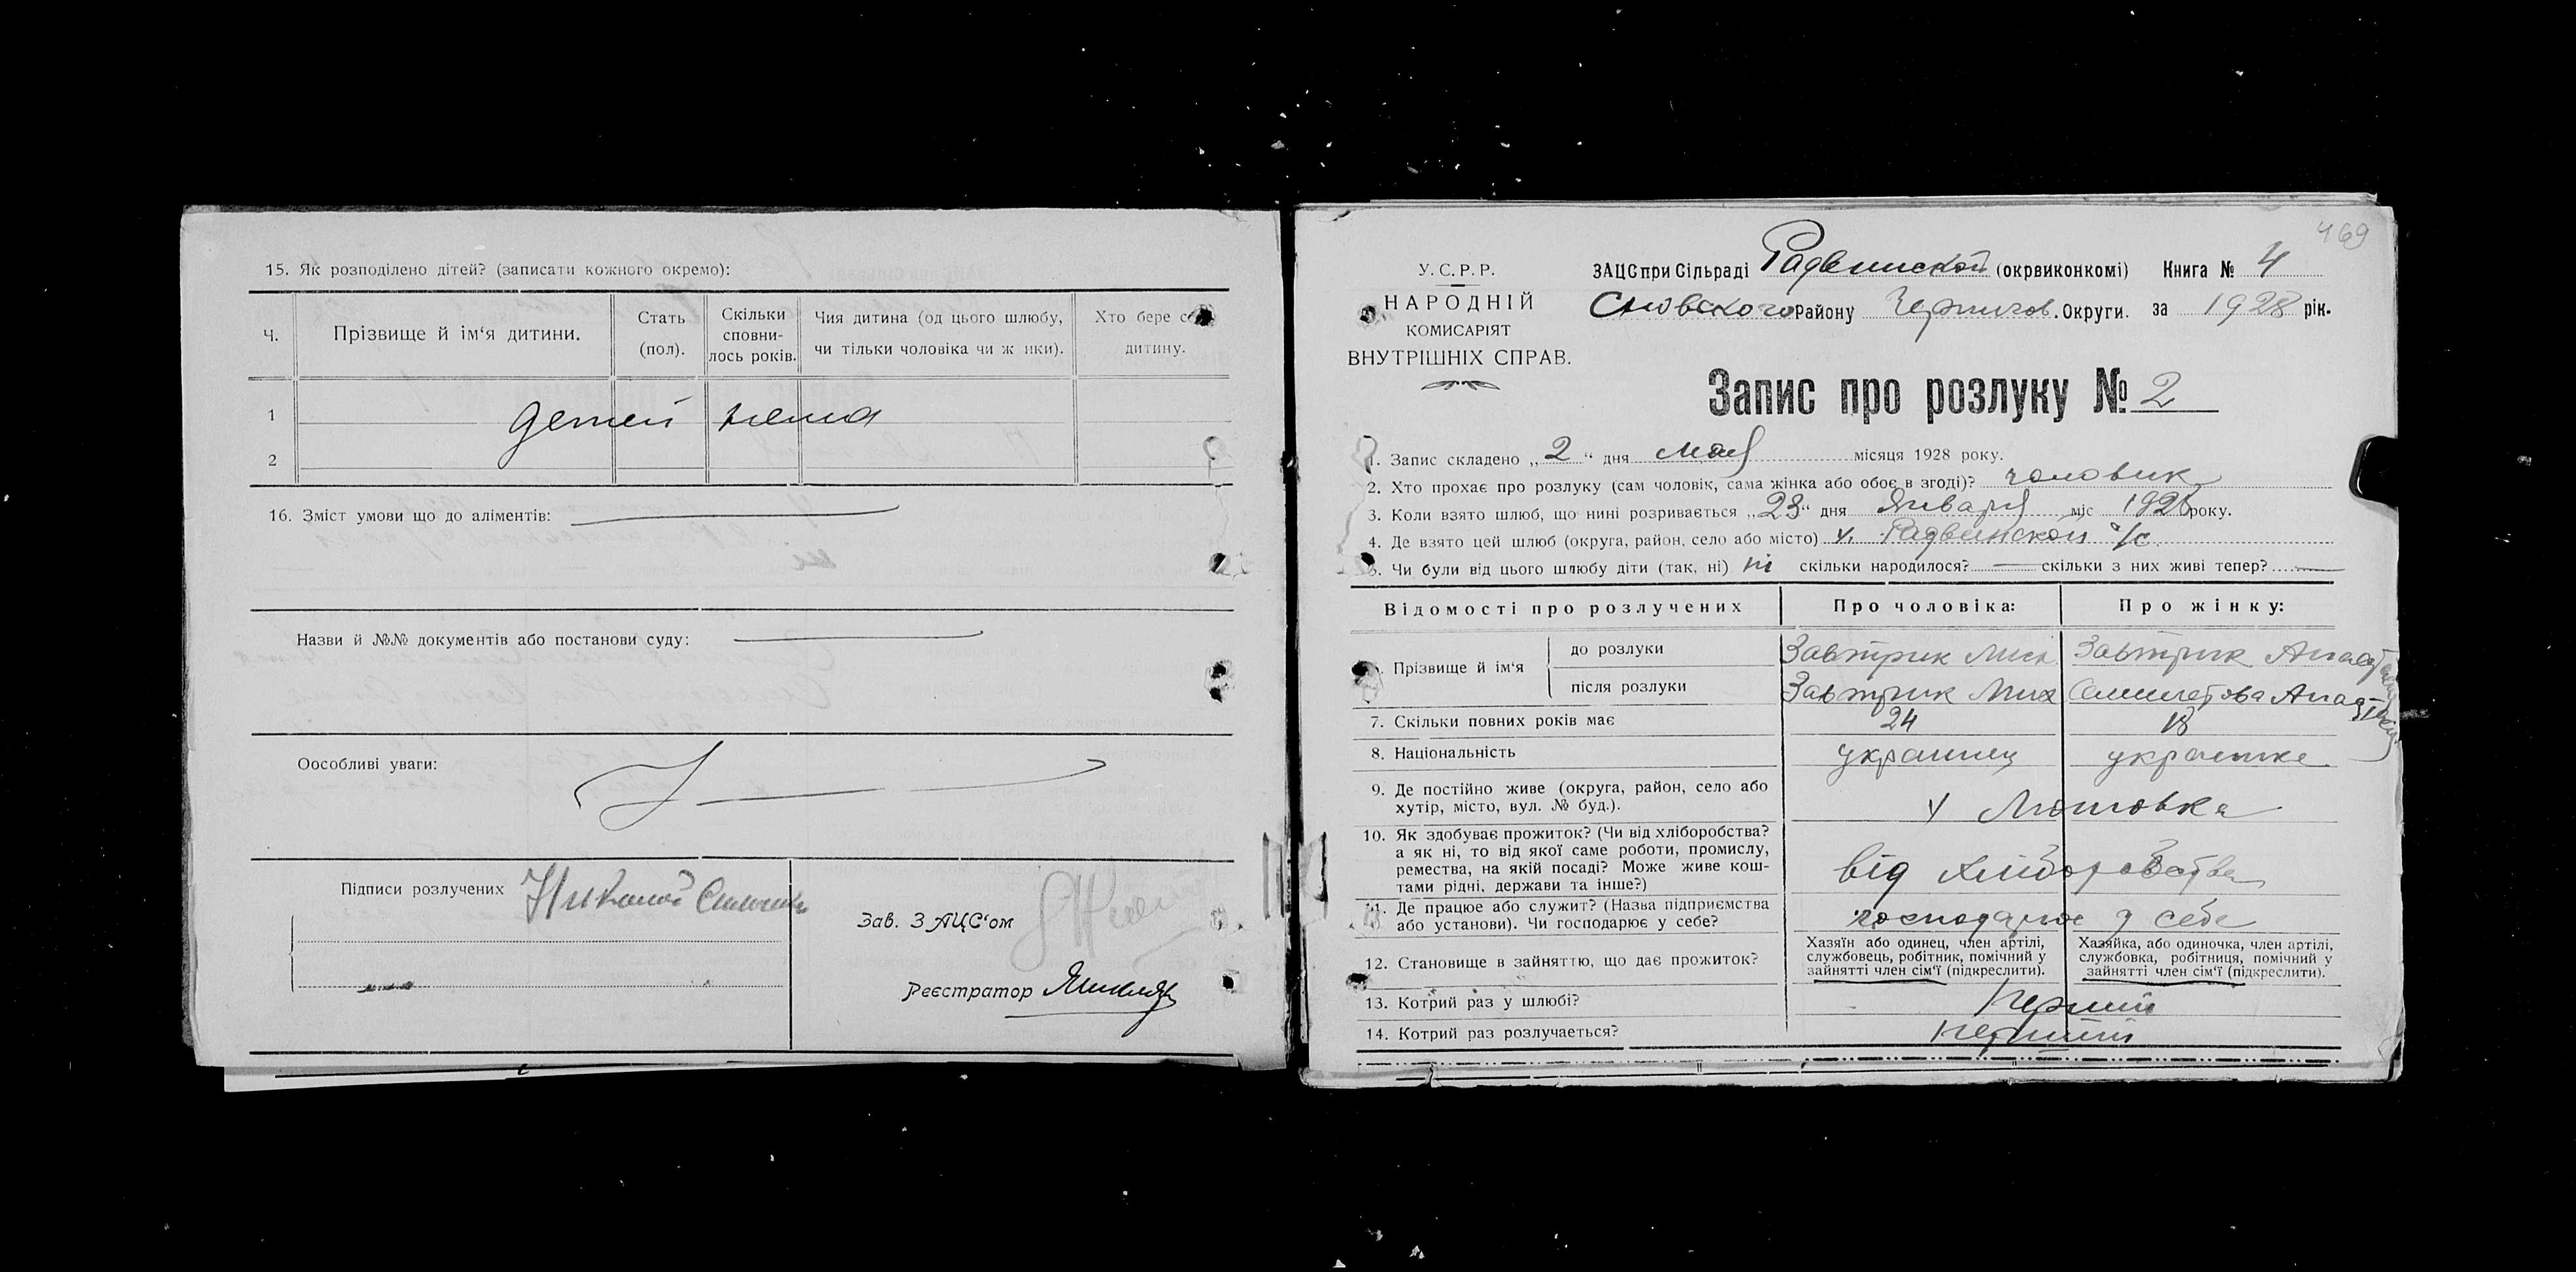 15. Як розподілено дітей? (записати кожного окремо):
Ч. Прізвище й ім‘я дитини. Стать (пол). Скільки сповни- лось років. Чия дитина (од цього шлюбу, чи тільки чоловіка чи ж нки). Хто бере с дитину.
1 детей нема
2
16. Зміст умови що до аліментів:
Назви й №№ документів або постанови суду:
Оособливі уваги:
Підписи розлучених
Зав. ЗАЦС‘ом
Реєстратор
469
У.С.Р.Р.
НАРОДНІЙ
КОМИСАРІЯТ
ВНУТРІШНІХ СПРАВ.
ЗАЦС при Сільраді Радвинской (окрвиконкомі) Книга № 4
Сновского Району Чернигов. Округи. за 1928 рік.
Запис про розлуку № 2
1. Запис складено „2“ дня мая місяця 1928 року.
2. Хто прохає про розлуку (сам чоловік, сама жінка або обоє в згоді)? чоловик
3. Коли взято шлюб, що нині розривається „23“ дня Января міс 1928 року.
4. Де взято цей шлюб (округа, район, село або місто) у Радвинской с/с
5. Чи були від цього шлюбу діти (так, ні) ні скільки народилося? — скільки з них живі тепер? —
Відомості про розлучених Про чоловіка: Про жінку:
Прізвище й ім‘я
до розлуки Завтрик Мих Завтрик Анастасия
після розлуки Завтрик Мих Анастасия
7. Скільки повних років має 24 18
8. Національність украинец украинка
9. Де постійно живе (округа, район, село або
хутір, місто, вул. № буд.). у
10. Як здобуває прожиток? (Чи від хліборобства?
а як ні, то від якої саме роботи, промислу,
ремества, на якій посаді? Може живе кош-
тами рідні, держави та інше?) від хліборобства
11. Де працює або служит? (Назва підприємства
або установи). Чи господарює у себе? господарює у себе
12. Становище в зайняттю, що дає прожиток?
Хазяїн або одинец, член артілі,
службовець, робітник, помічний у
зайнятті член сім‘ї (підкреслити).
Хазяйка, або одиночка, член артілі,
службовка, робітниця, помічний у
зайнятті член сім‘ї (підкреслити).
13. Котрий раз у шлюбі? перший
14. Котрий раз розлучається? перший